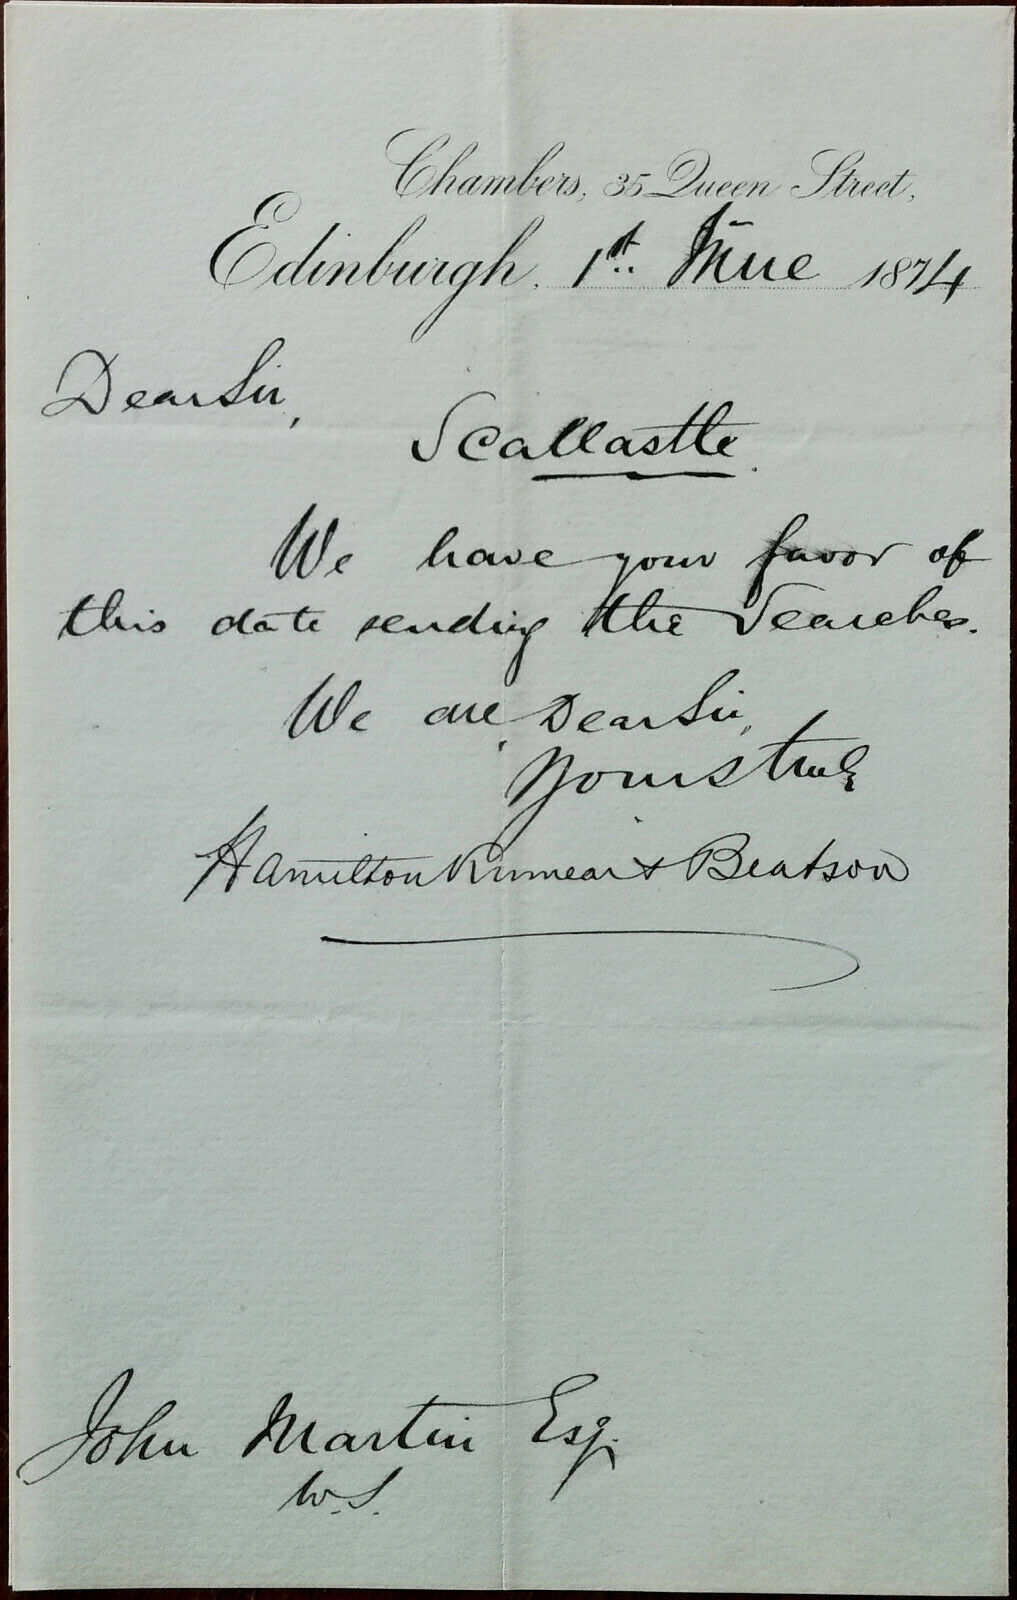 Chambers, 35 Queen Street,
Edinburgh, 1st. June 1874
Dear Sir,
Scallastle.
We have your favor of
this date sending the Searches.
We are, Dear Sir,
Yours truly
Hamilton Kinnear & Beatson
John Martin Esq.
W.S.